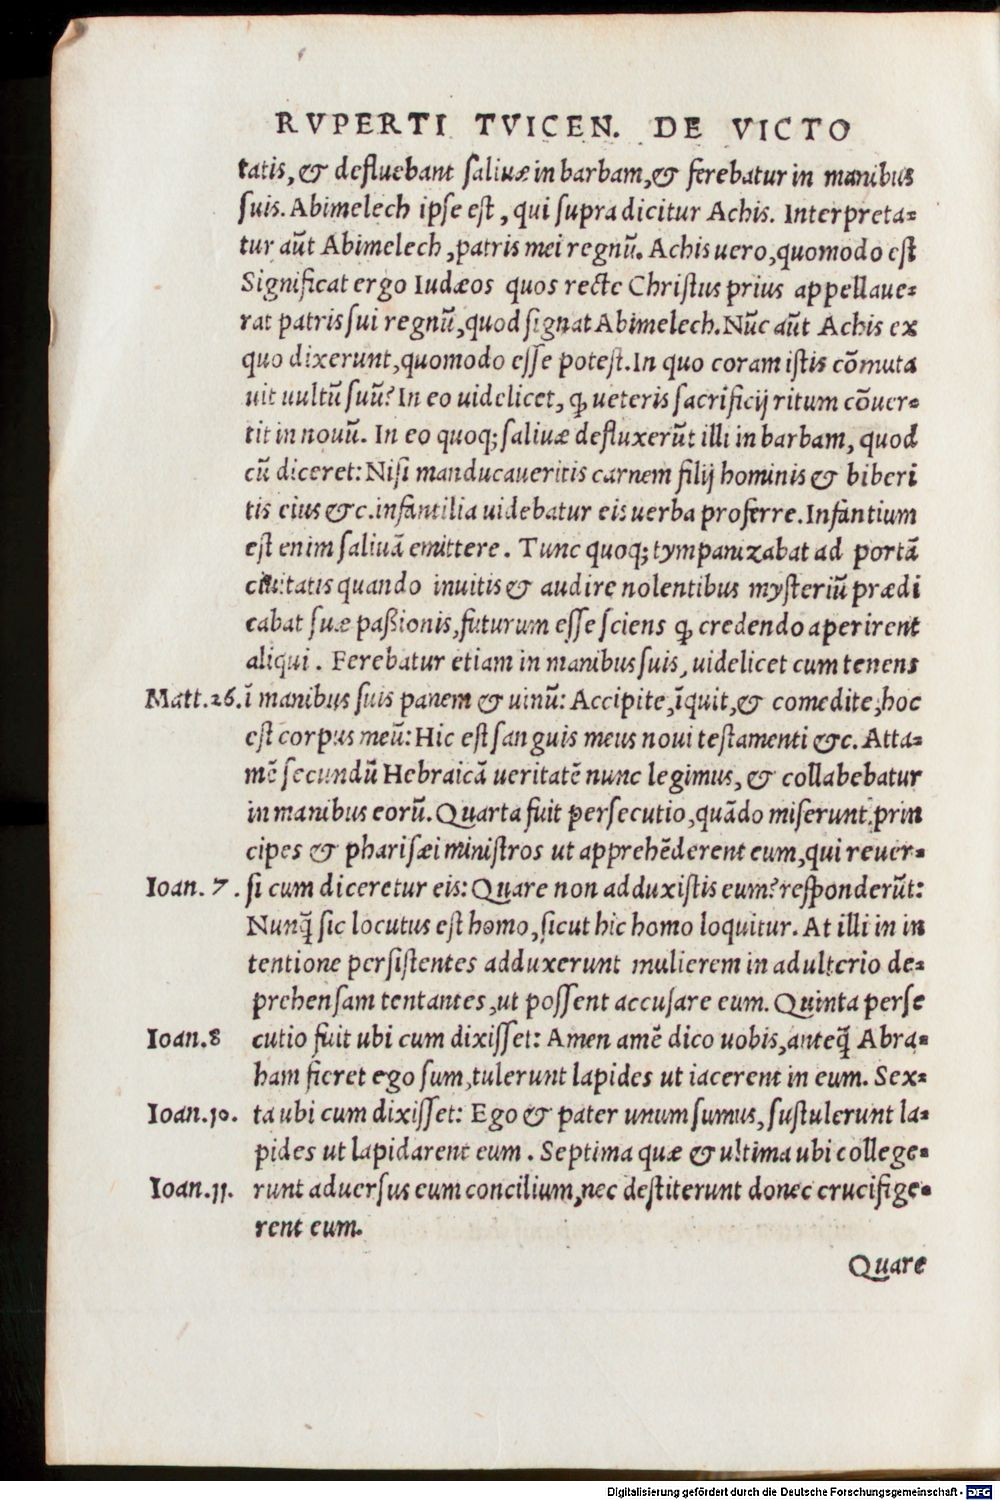 RVPERTI TVICEN. DE VICTO
tatis, & defluebant saliuæ in barbam, & ferebatur in manibus
suis. Abimelech ipse est, qui supra dicitur Achis. Interpreta-
tur aũt Abimelech, patris mei regnũ. Achis uero, quomodo est
Significat ergo Iudæos quos recte Christus prius appellaue-
rat patris sui regnũ, quod signat Abimelech. Nũc aũt Achis ex
quo dixerunt, quomodo esse potest. In quo coram istis cõmuta
uit uultũ suũ? In eo uidelicet, ꝙ ueteris sacrificij ritum cõuer-
tit in nouũ. In eo quoq; saliuæ defluxerũt illi in barbam, quod
cũ diceret: Nisi manducaueritis carnem filij hominis & biberi
tis eius &c. infantilia uidebatur eis uerba proferre. Infantium
est enim saliuã emittere. Tunc quoq; tympanizabat ad portã
ciuitatis quando inuitis & audire nolentibus mysteriũ prædi
cabat suæ paßionis, futurum esse sciens ꝙ credendo aperirent
aliqui. Ferebatur etiam in manibus suis, uidelicet cum tenens
Matt.26. ĩ manibus suis panem & uinũ: Accipite, ĩquit, & comedite, hoc
est corpus meũ: Hic est sanguis meus noui testamenti &c. Atta-
mẽ secundũ Hebraicã ueritatẽ nunc legimus, & collabebatur
in manibus eorũ. Quarta fuit persecutio, quãdo miserunt prin
cipes & pharisæi ministros ut apprehẽderent eum, qui reuer-
Ioan. 7. si cum diceretur eis: Quare non adduxistis eum? responderũt:
Nunq̃ sic locutus est homo, sicut hic homo loquitur. At illi in in
tentione persistentes adduxerunt mulierem in adulterio de-
prehensam tentantes, ut possent accusare eum. Quinta perse
Ioan.8 cutio fuit ubi cum dixisset: Amen amẽ dico uobis, anteq̃ Abra-
ham fieret ego sum, tulerunt lapides ut iacerent in eum. Sex-
Ioan.10. ta ubi cum dixisset: Ego & pater unum sumus, sustulerunt la-
pides ut lapidarent eum. Septima quæ & ultima ubi college-
Ioan.11. runt aduersus eum concilium, nec destiterunt donec crucifige-
rent eum.
Quare
Digitalisierung gefördert durch die Deutsche Forschungsgemeinschaft - DFG